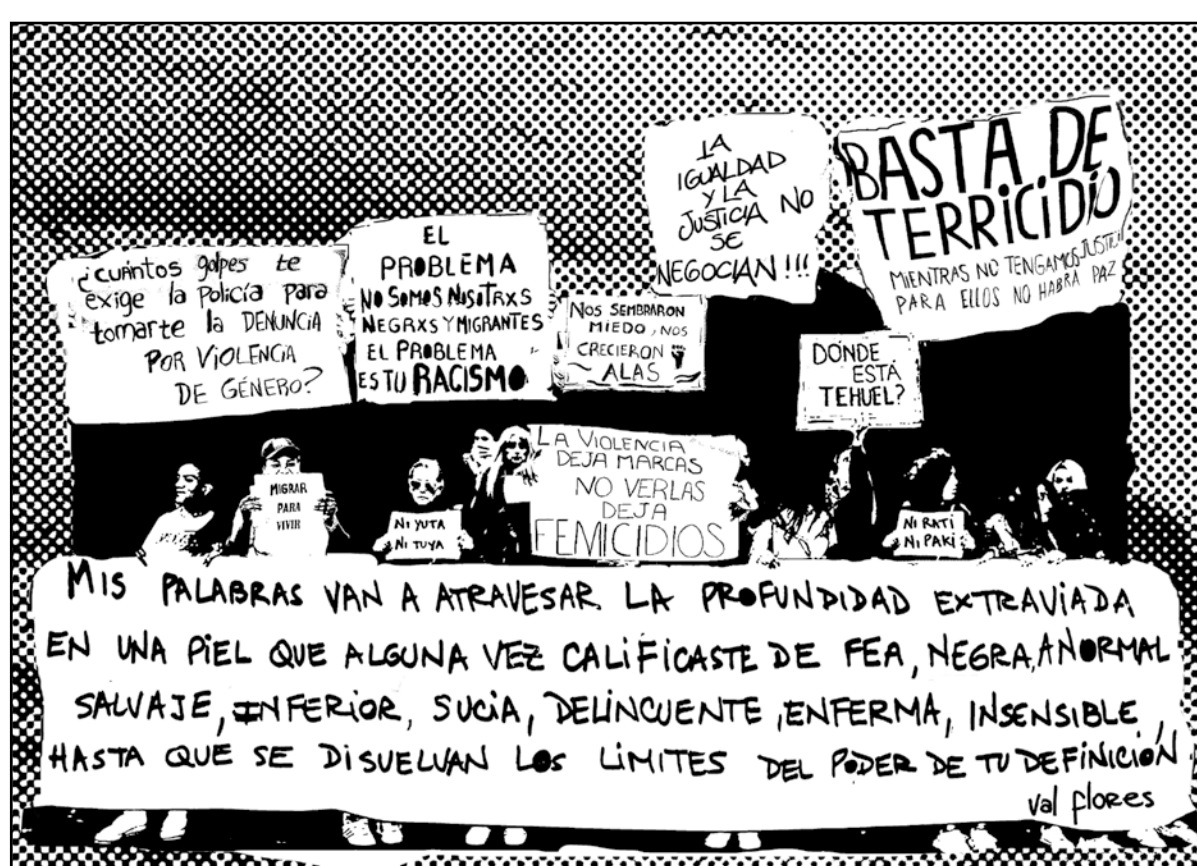 ¿cuántos golpes te
exige la Policía para
tomarte la DENUNCIA
POR VIOLENCIA
DE GÉNERO?
EL
PROBLEMA
NO SOMOS NOSOTRXS
NEGRXS Y MIGRANTES
EL PROBLEMA
ES TU RACISMO
NOS SEMBRARON
MIEDO, NOS
CRECIERON
ALAS
LA
IGUALDAD
Y LA
JUSTICIA NO
SE
NEGOCIAN!!!
BASTA DE
TERRICIDIO
MIENTRAS NO TENGAMOS JUSTICIA
PARA ELLOS NO HABRÁ PAZ
DÓNDE
ESTÁ
TEHUEL?
MIGRAR
PARA
VIVIR
NI YUTA
NI TUYA
LA VIOLENCIA
DEJA MARCAS
NO VERLAS
DEJA
FEMICIDIOS
NI RATI
NI PAKI
MIS PALABRAS VAN A ATRAVESAR LA PROFUNDIDAD EXTRAVIADA
EN UNA PIEL QUE ALGUNA VEZ CALIFICASTE DE FEA, NEGRA, ANORMAL
SALVAJE, INFERIOR, SUCIA, DELINCUENTE, ENFERMA, INSENSIBLE,
HASTA QUE SE DISUELVAN LOS LÍMITES DEL PODER DE TU DEFINICIÓN
val flores